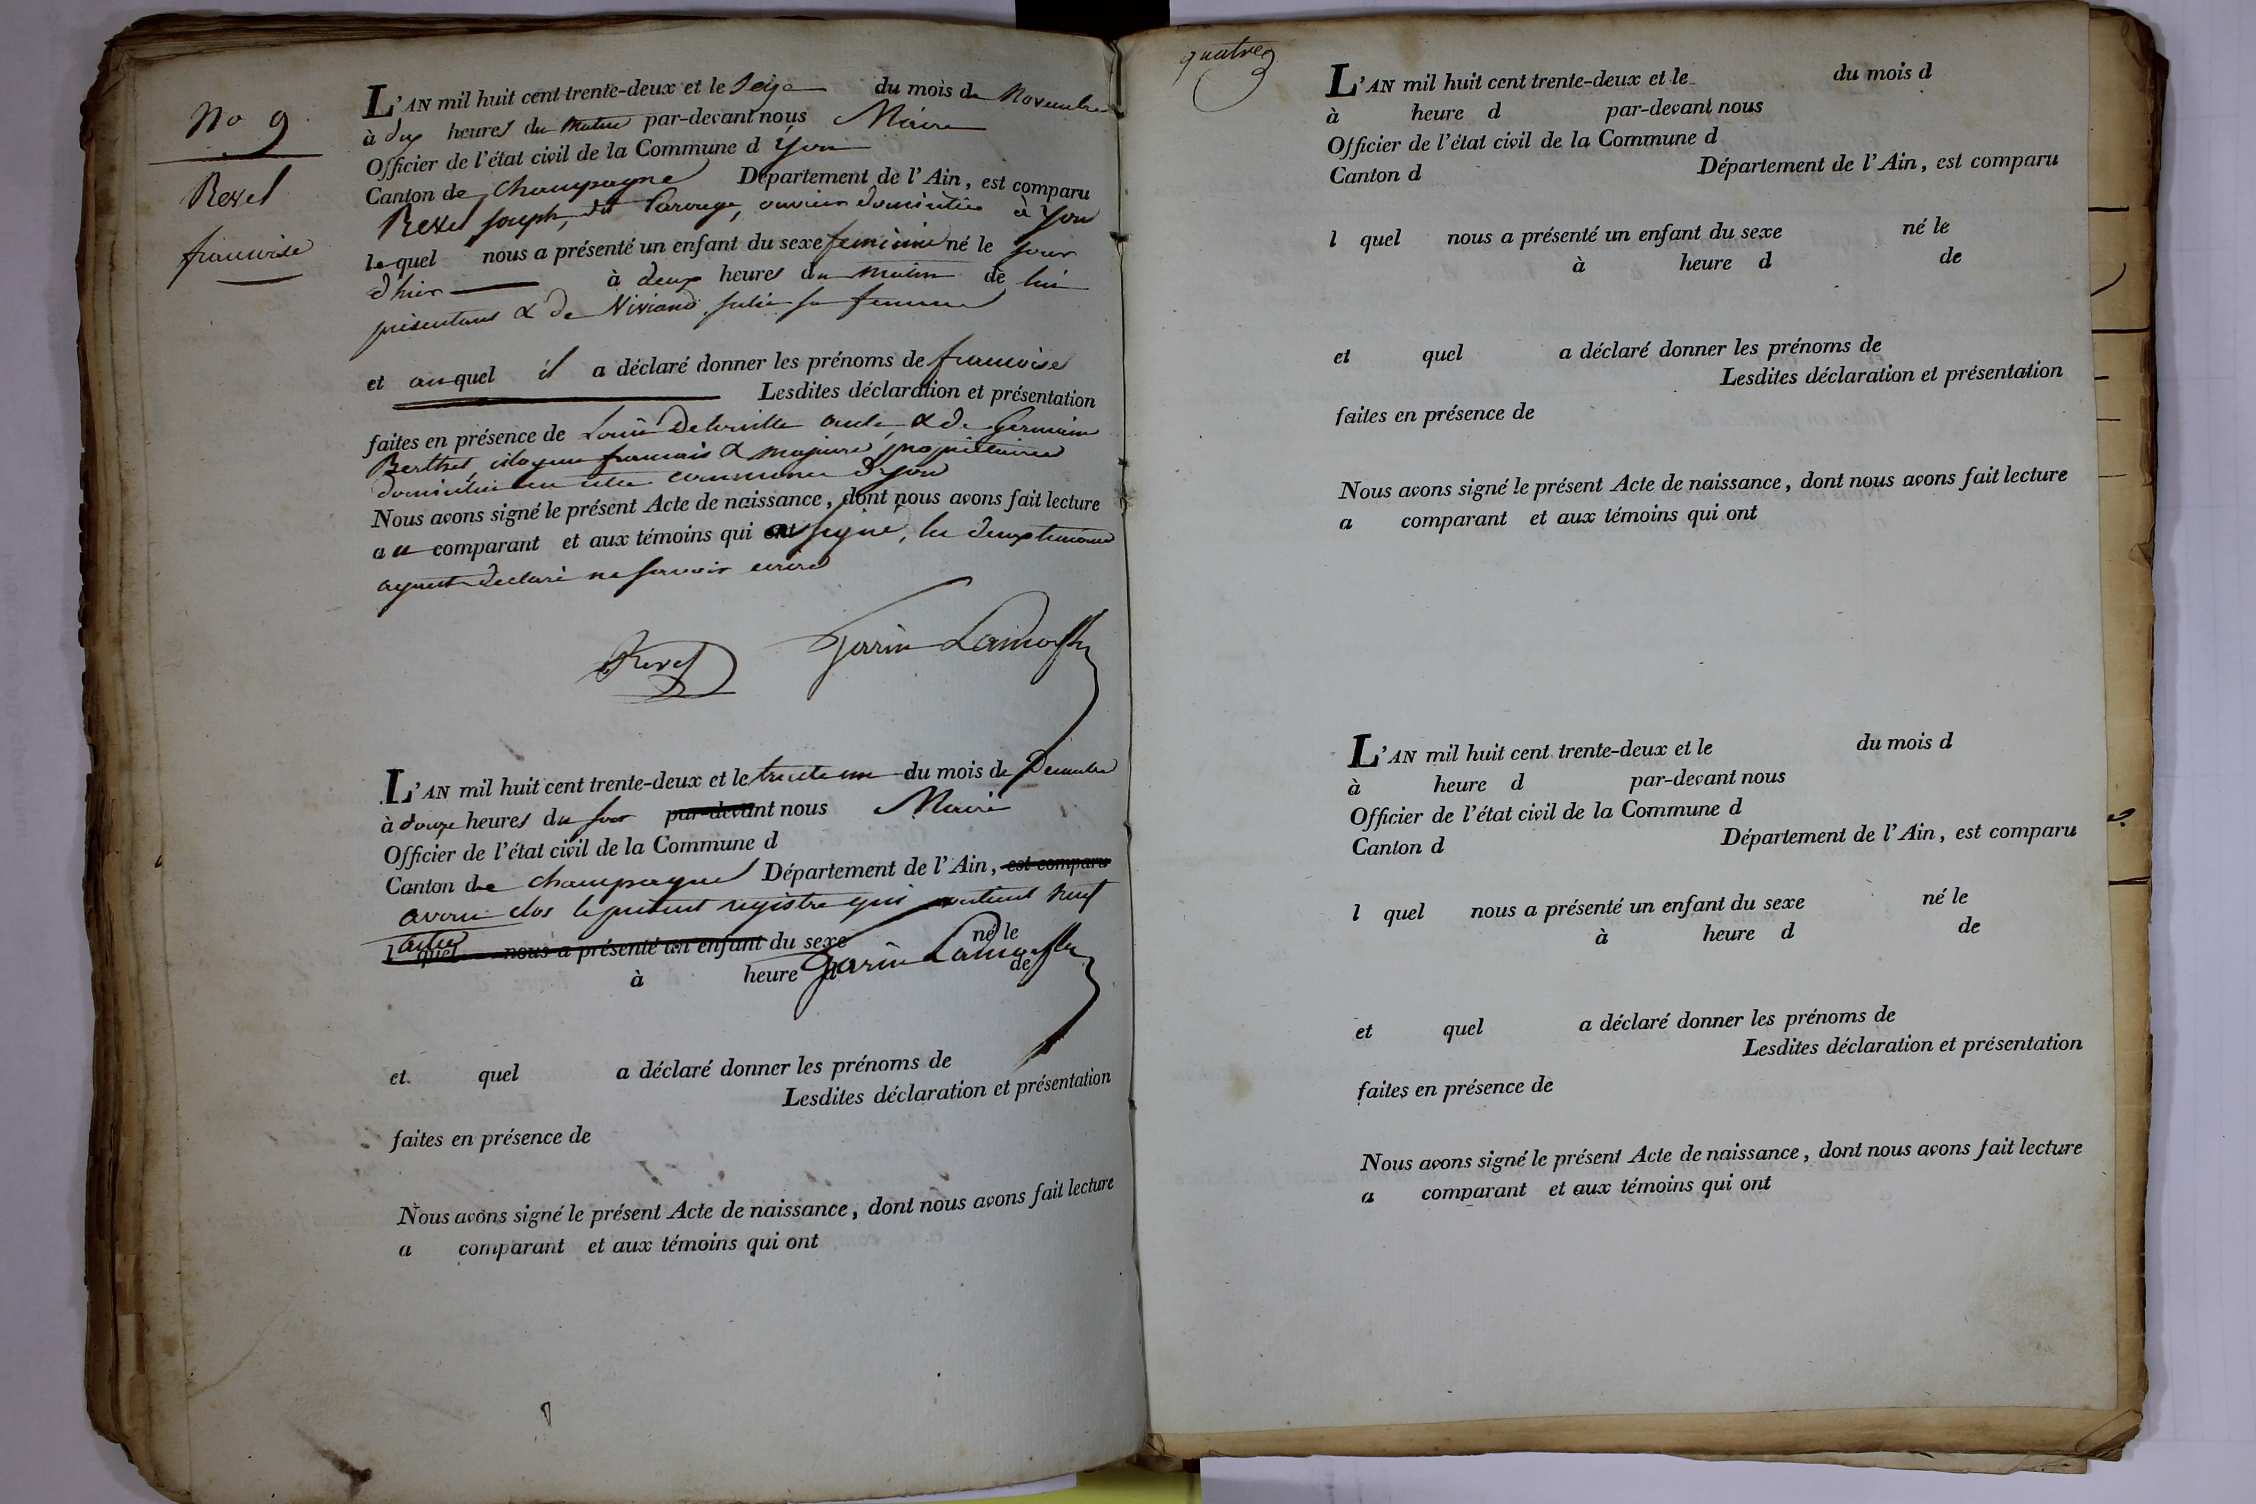 No 9
Revel
francoise
L'AN mil huit cent trente-deux et le Seize du mois de Novembre
à dix heures du matin par-devant nous Maire
Officier de l'état civil de la Commune d yon
Canton de Champagne Département de l'Ain, est comparu
Revel joseph, dit ouvrier domicilié à yon
lequel nous a présenté un enfant du sexe feminin né le jour
d'hier à deux heures du matin de lui
présentant & de Viviand julie sa femme
et auquel il a déclaré donner les prénoms de francoise
Lesdites déclaration et présentation
faites en présence de Louis & de Germain
Berthet, citoyens francais & majeurs propriétaires
domiciliés en cette commune d'yon
Nous avons signé le présent Acte de naissance, dont nous avons fait lecture
au comparant et aux témoins qui a signé, les deux temoins
ayant declaré ne savoir ecrire
Revel
L'AN mil huit cent trente-deux et le trente un du mois de Decembre
à douze heures du soir par-devant nous Maire
Officier de l'état civil de la Commune d
Canton de Champagne Département de l'Ain, est comparu
avons clos le présent registre qui contient neuf
actes
l quel nous a présenté un enfant du sexe né le
à heure d de
et quel a déclaré donner les prénoms de
Lesdites déclaration et présentation
faites en présence de
Nous avons signé le présent Acte de naissance, dont nous avons fait lecture
a comparant et aux témoins qui ont
quatre
L'AN mil huit cent trente-deux et le du mois d
à heure d par-devant nous
Officier de l'état civil de la Commune d
Canton d Département de l'Ain, est comparu
l quel nous a présenté un enfant du sexe né le
à heure d de
et quel a déclaré donner les prénoms de
Lesdites déclaration et présentation
faites en présence de
Nous avons signé le présent Acte de naissance, dont nous avons fait lecture
a comparant et aux témoins qui ont
L'AN mil huit cent trente-deux et le du mois d
à heure d par-devant nous
Officier de l'état civil de la Commune d
Canton d Département de l'Ain, est comparu
l quel nous a présenté un enfant du sexe né le
à heure d de
et quel a déclaré donner les prénoms de
Lesdites déclaration et présentation
faites en présence de
Nous avons signé le présent Acte de naissance, dont nous avons fait lecture
a comparant et aux témoins qui ont